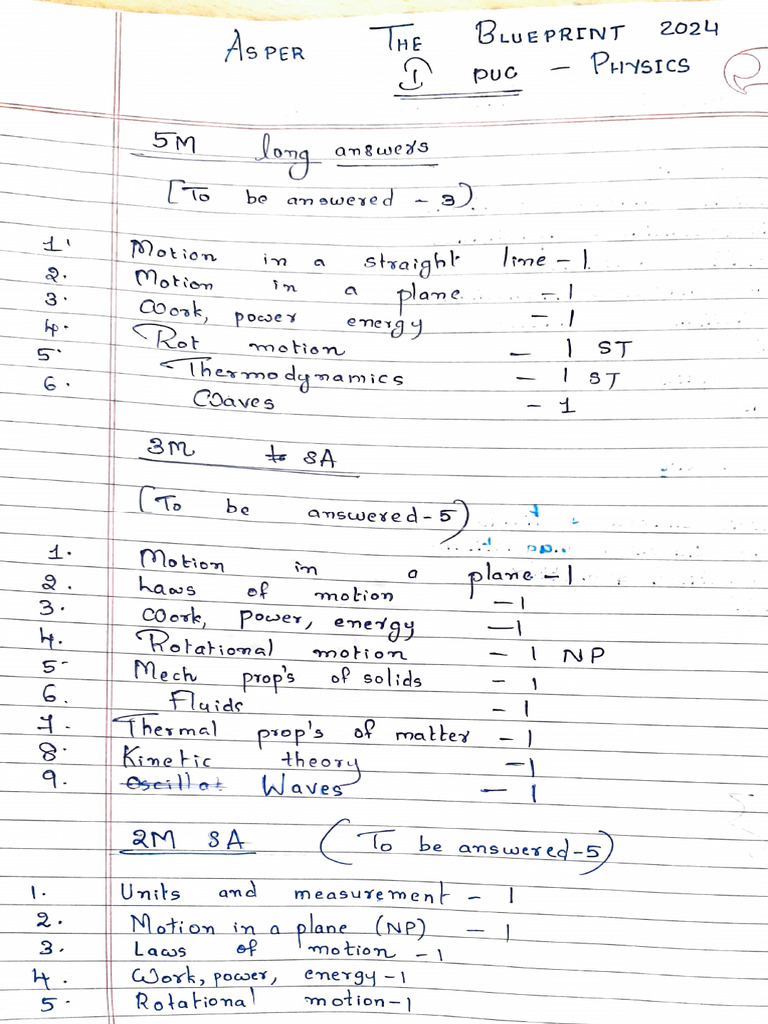 AS PER THE BLUEPRINT 2024
I PUC - PHYSICS
5M long answers
[To be answered - 3)
1. Motion in a straight line - 1
2. Motion in a plane - 1
3. Work, power energy - 1
4. Rot motion - 1 ST
5. Thermodynamics - 1 ST
6. Waves - 1
3M SA
(To be answered - 5)
1. Motion in a plane - 1.
2. Laws of motion - 1
3. Work, power, energy - 1
4. Rotational motion - 1 NP
5. Mech prop's of solids - 1
6. Fluids - 1
7. Thermal prop's of matter - 1
8. Kinetic theory - 1
9. Oscillat Waves - 1
2M SA (To be answered - 5)
1. Units and measurement - 1
2. Motion in a plane (NP) - 1
3. Laws of motion - 1
4. Work, power, energy - 1
5. Rotational motion - 1